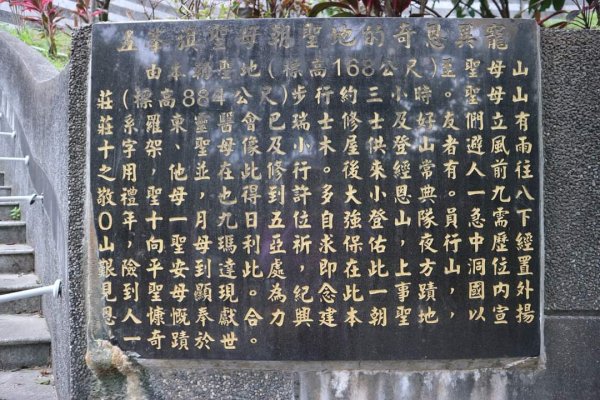 五峯旗聖母朝聖地的奇恩異寵
由本朝聖地(標高168公尺)至聖母山
莊(標高88公尺)步行約三小時。聖母山
莊系羅東靈醫會巴瑞士修士及好友們立有
十字架、聖母像及小木屋供登山者避風雨
之用，他並在此修行。後來經常有人前往
敬禮聖母，也得到許多大小恩典。一九八
〇年十一月九日五位自強登山隊員急需下
山，向聖母瑪利亞祈求保佑，夜行中歷經
艱險平安到達此處，即在此上方山洞位置
見到聖母顯現。為紀念此一事蹟，國內外
恩人慷慨奉獻。合力興建本朝聖地，以宣揚
一奇蹟於世。